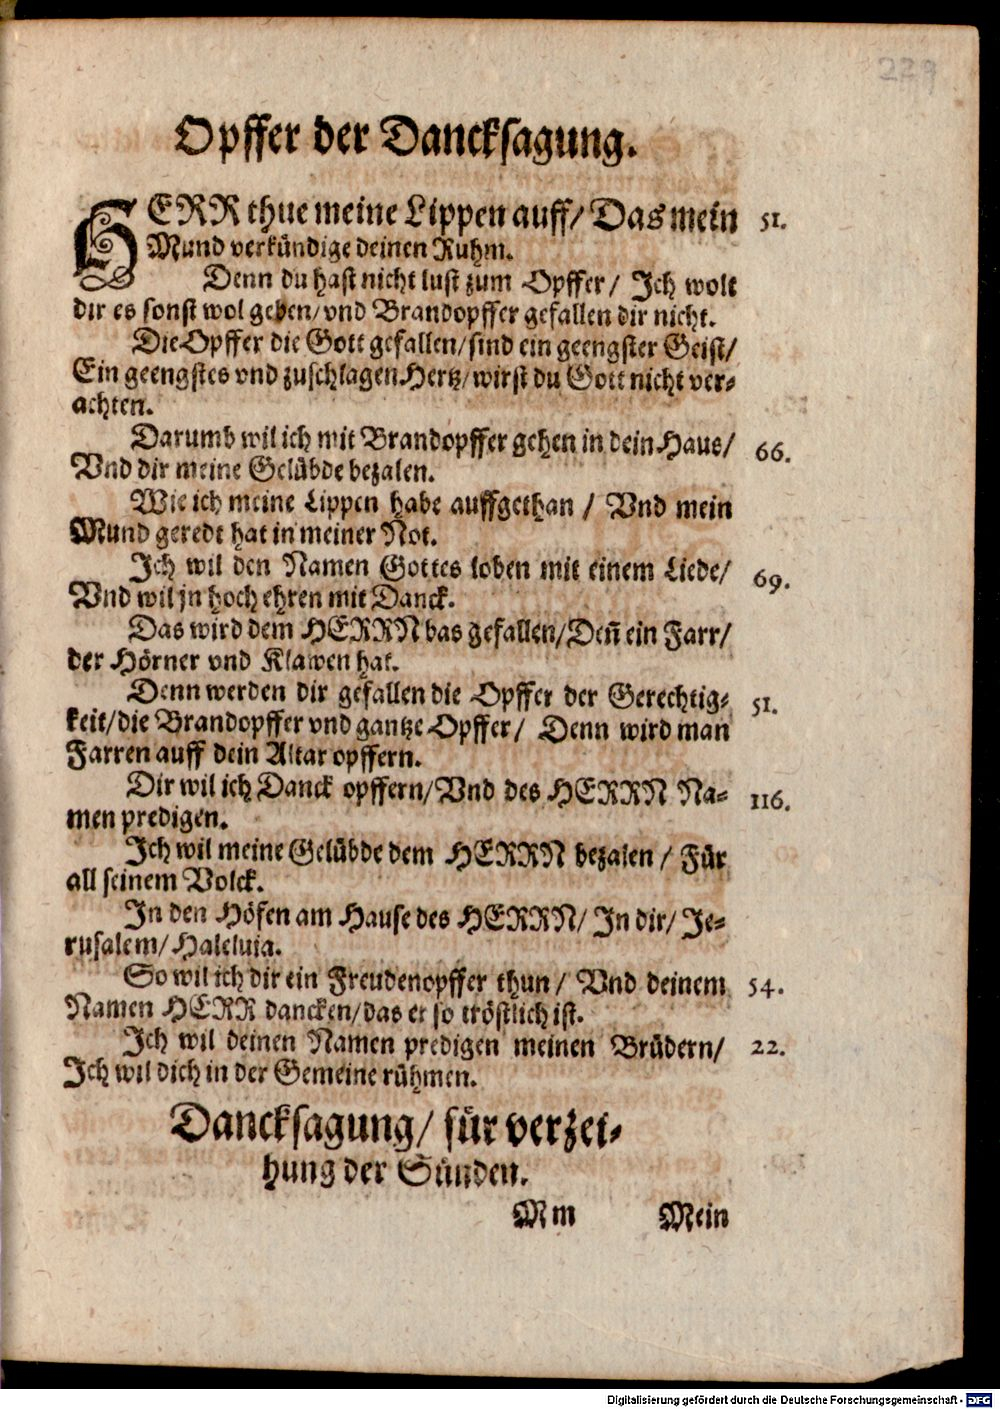 229
Opffer der Dancksagung.
HERR thue meine Lippen auff/ Das mein 51.
Mund verkündige deinen Ruhm.
Denn du hast nicht lust zum Opffer/ Ich wolt
dir es sonst wol geben/ vnd Brandopffer gefallen dir nicht.
Die Opffer die Gott gefallen/ sind ein geengster Geist/
Ein geengstes vnd zuschlagen Hertz/ wirst du Gott nicht ver-
achten.
Darumb wil ich mit Brandopffer gehen in dein Haus/ 66.
Vnd dir meine Gelübde bezalen.
Wie ich meine Lippen habe auffgethan / Vnd mein
Mund geredt hat in meiner Not.
Ich wil den Namen Gottes loben mit einem Liede/ 69.
Vnd wil jn hoch ehren mit Danck.
Das wird dem HERRN bas gefallen/ Deñ ein Farr/
der Hörner vnd Klawen hat.
Denn werden dir gefallen die Opffer der Gerechtig- 51.
keit/ die Brandopffer vnd gantze Opffer/ Denn wird man
Farren auff dein Altar opffern.
Dir wil ich Danck opffern/ Vnd des HERRN Na- 116.
men predigen.
Ich wil meine Gelübde dem HERRN bezalen / Für
all seinem Volck.
In den Höfen am Hause des HERRN/ In dir/ Je-
rusalem/ Haleluia.
So wil ich dir ein Freudenopffer thun/ Vnd deinem 54.
Namen HERR dancken/ das er so tröstlich ist.
Ich wil deinen Namen predigen meinen Brüdern/ 22.
Ich wil dich in der Gemeine rühmen.
Dancksagung/ für verzei-
hung der Sünden.
Mm Mein
Digitalisierung gefördert durch die Deutsche Forschungsgemeinschaft - DFG